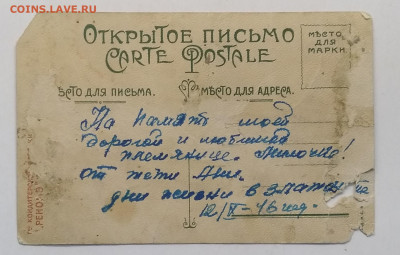 COINS.LAVE.RU
ОТКРЫТОЕ ПИСЬМО
CARTE POSTALE
МѢСТО
ДЛЯ
МАРКИ.
ѢСТО ДЛЯ ПИСЬМА.
МѢСТО ДЛЯ АДРЕСА.
На память моей
дорогой и любимой
племянице. Лилочке!
от тети Ани.
дни жизни в
12/II-46 год.
"РЕНО